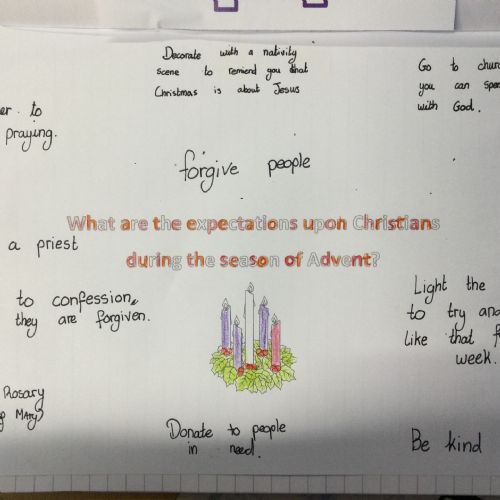 Decorate with a nativity
scene to remiend you that
Christmas is about Jesus
Go to
you can
with God.
to
praying.
forgive people
What are the expectations upon Christians
during the season of Advent?
a priest
to confession,
they are forgiven.
Light the
to try and
like that
week.
Rosary
Mary
Donate to people
in need.
Be kind